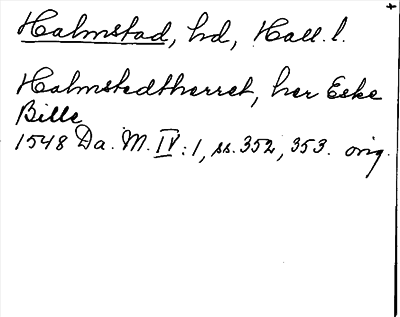 Halmstad, hd, Hall. l.
Halmstedtherret, her Eske
Bille
1548 Da. M. IV: 1, ss. 352, 353. orig.